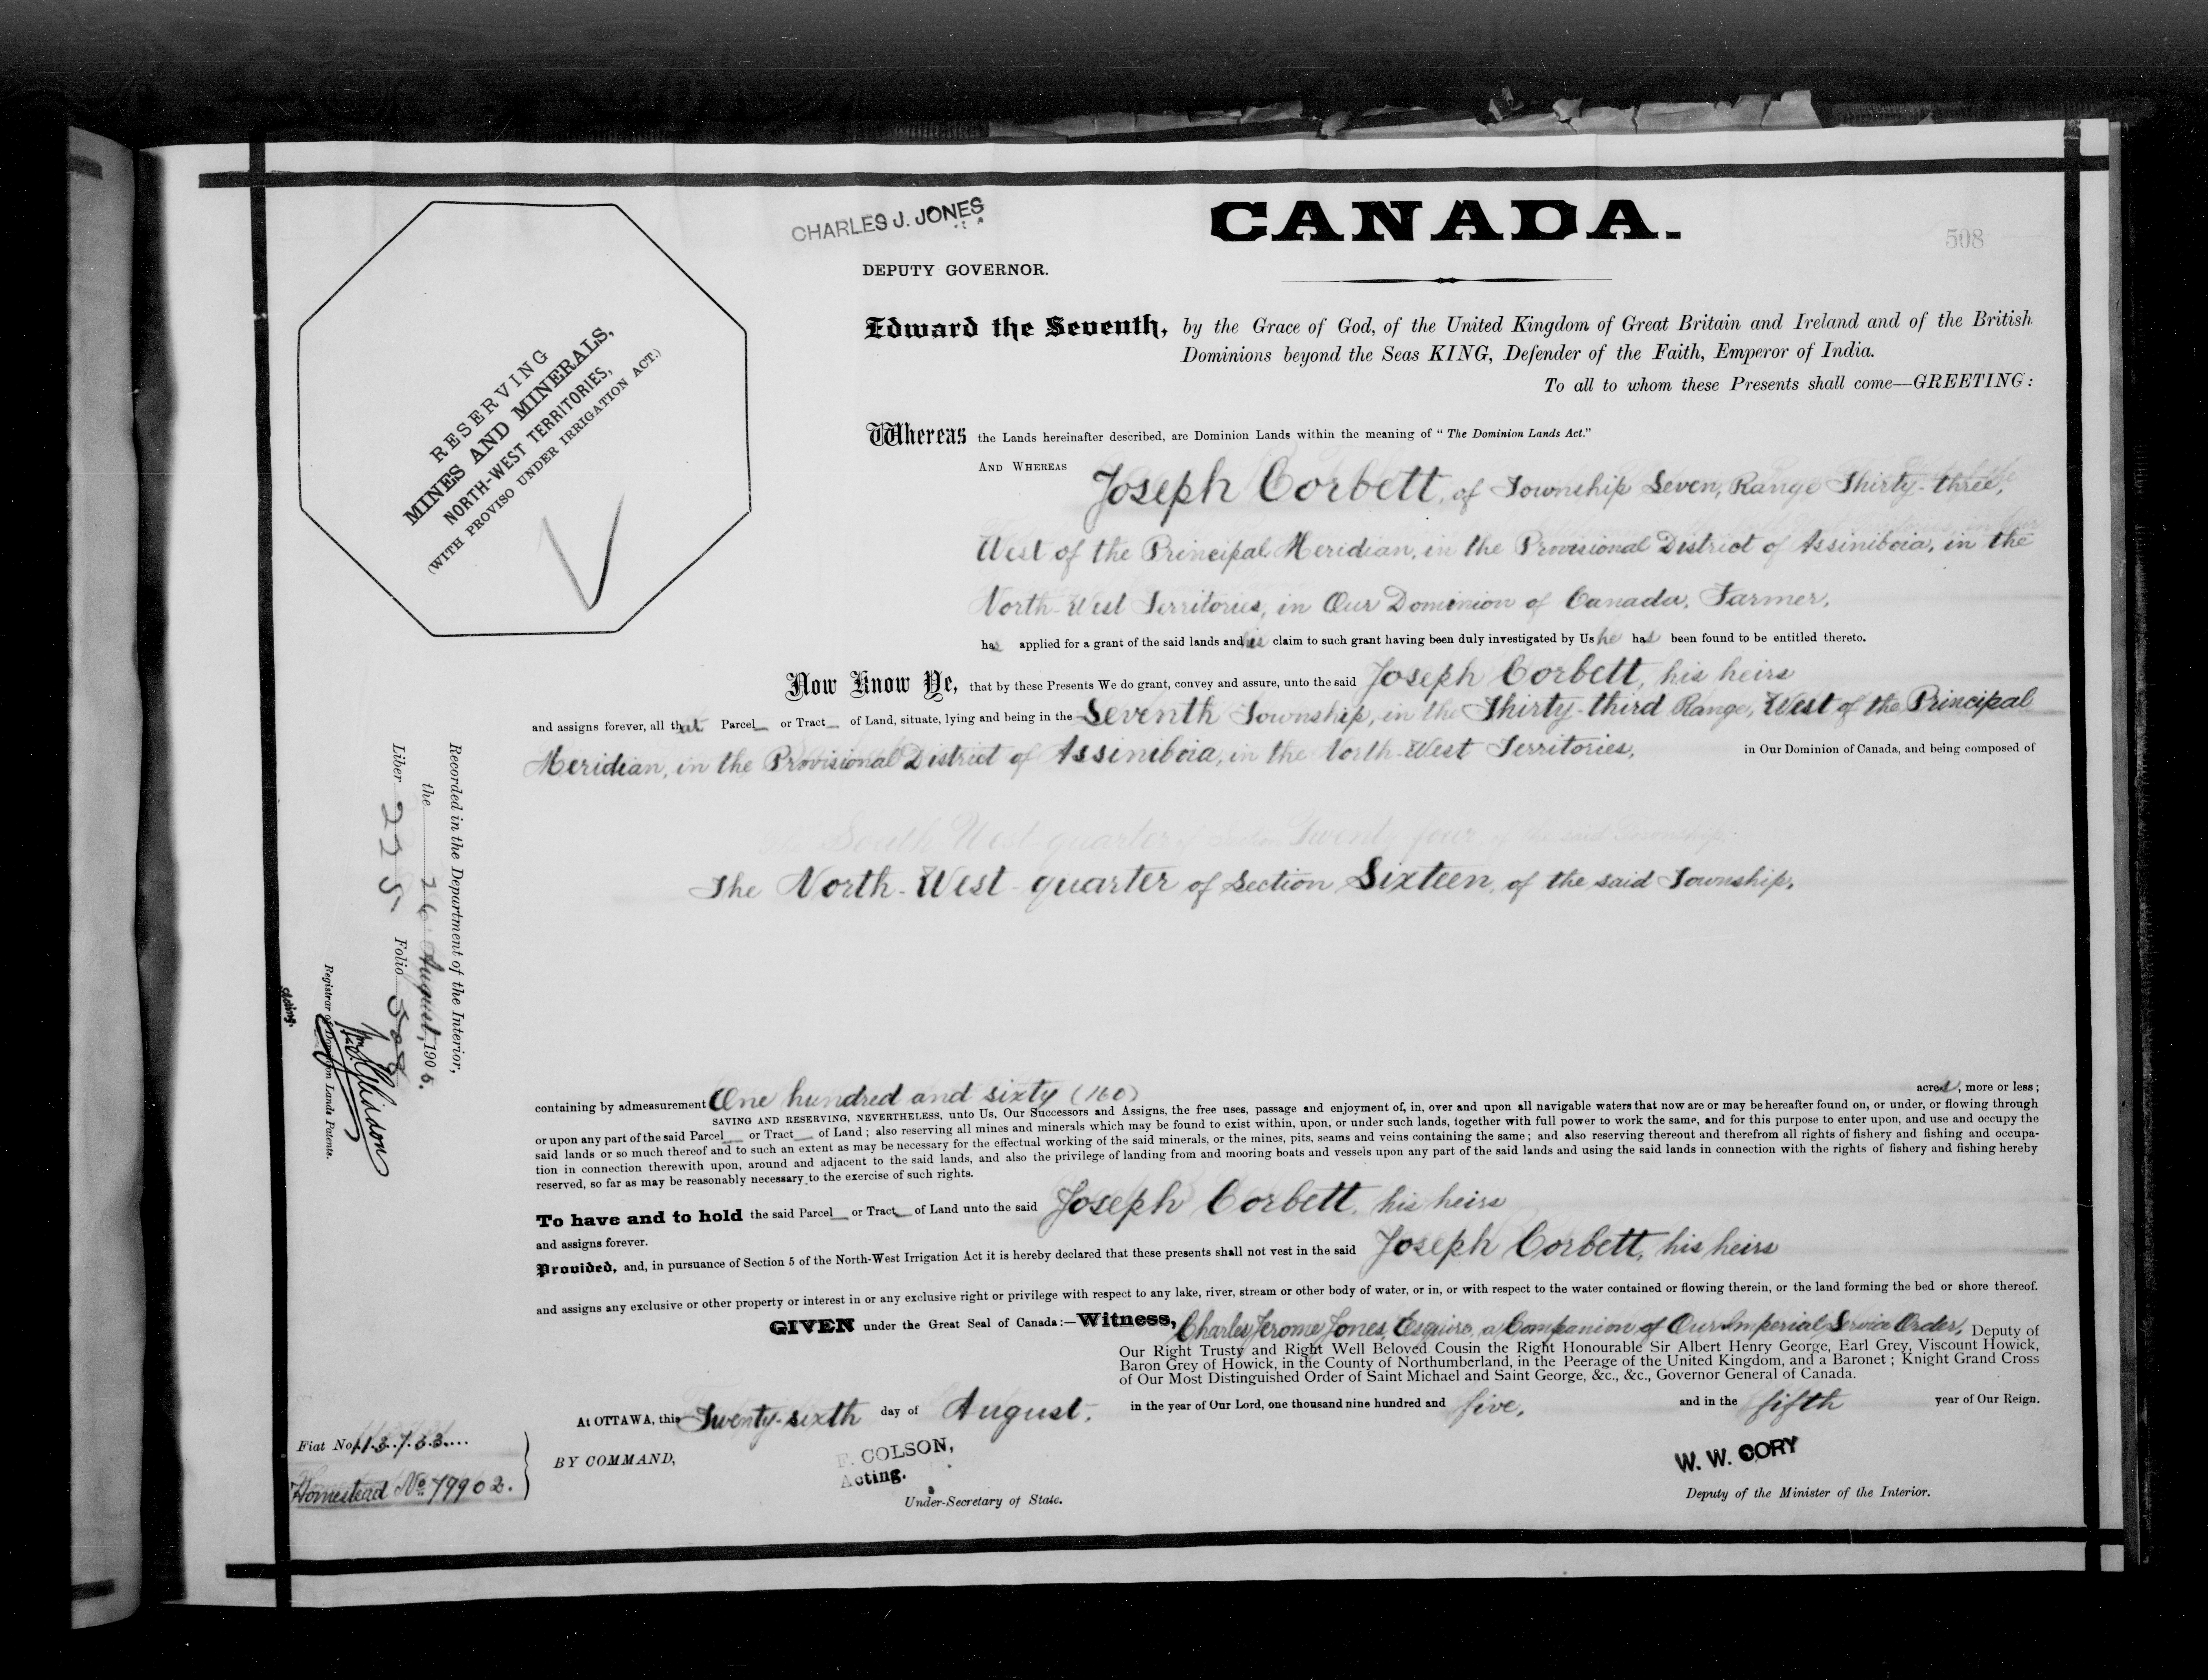 CHARLES J. JONES
CANADA.
508
DEPUTY GOVERNOR.
RESERVING
MINES AND MINERALS,
NORTH-WEST TERRITORIES,
(WITH PROVISO UNDER IRRIGATION ACT.)
Edward the Seventh, by the Grace of God, of the United Kingdom of Great Britain and Ireland and of the British
Dominions beyond the Seas KING, Defender of the Faith, Emperor of India.
To all to whom these Presents shall come—GREETING:
Whereas the Lands hereinafter described, are Dominion Lands within the meaning of "The Dominion Lands Act."
AND WHEREAS Joseph Corbett, of Township Seven, Range Thirty-three,
West of the Principal Meridian, in the Provisional District of Assiniboia, in the
North-West Territories, in Our Dominion of Canada, Farmer,
has applied for a grant of the said lands and his claim to such grant having been duly investigated by Us he has been found to be entitled thereto.
Now Know Ye, that by these Presents We do grant, convey and assure, unto the said Joseph Corbett, his heirs
and assigns forever, all that Parcel or Tract of Land, situate, lying and being in the Seventh Township, in the Thirty-third Range, West of the Principal
Meridian, in the Provisional District of Assiniboia, in the North-West Territories, in Our Dominion of Canada, and being composed of
The North-West-quarter of Section Sixteen, of the said Township,
containing by admeasurement One hundred and sixty (160) acres, more or less;
SAVING AND RESERVING, NEVERTHELESS, unto Us, Our Successors and Assigns, the free uses, passage and enjoyment of, in, over and upon all navigable waters that now are or may be hereafter found on, or under, or flowing through
or upon any part of the said Parcel or Tract of Land; also reserving all mines and minerals which may be found to exist within, upon, or under such lands, together with full power to work the same, and for this purpose to enter upon, and use and occupy the
said lands or so much thereof and to such an extent as may be necessary for the effectual working of the said minerals, or the mines, pits, seams and veins containing the same; and also reserving thereout and therefrom all rights of fishery and fishing and occupa-
tion in connection therewith upon, around and adjacent to the said lands, and also the privilege of landing from and mooring boats and vessels upon any part of the said lands and using the said lands in connection with the rights of fishery and fishing hereby
reserved, so far as may be reasonably necessary to the exercise of such rights.
To have and to hold the said Parcel or Tract of Land unto the said Joseph Corbett, his heirs
and assigns forever.
Provided, and, in pursuance of Section 5 of the North-West Irrigation Act it is hereby declared that these presents shall not vest in the said Joseph Corbett, his heirs
and assigns any exclusive or other property or interest in or any exclusive right or privilege with respect to any lake, river, stream or other body of water, or in, or with respect to the water contained or flowing therein, or the land forming the bed or shore thereof.
GIVEN under the Great Seal of Canada:—Witness, Charles Jerome Jones, Esquire, a Companion of Our Imperial Service Order, Deputy of
Our Right Trusty and Right Well Beloved Cousin the Right Honourable Sir Albert Henry George, Earl Grey, Viscount Howick,
Baron Grey of Howick, in the County of Northumberland, in the Peerage of the United Kingdom, and a Baronet; Knight Grand Cross
of Our Most Distinguished Order of Saint Michael and Saint George, &c., &c., Governor General of Canada.
At OTTAWA, this Twenty-sixth day of August, in the year of Our Lord, one thousand nine hundred and five, and in the fifth year of Our Reign.
BY COMMAND,
F. COLSON,
Acting.
Under-Secretary of State.
W. W. CORY
Deputy of the Minister of the Interior.
Fiat No. 113733
Homestead No. 79902.
Recorded in the Department of the Interior,
the 26 August, 1905.
Liber 225 Folio 508
Registrar of Dominion Lands Patents.
acting.